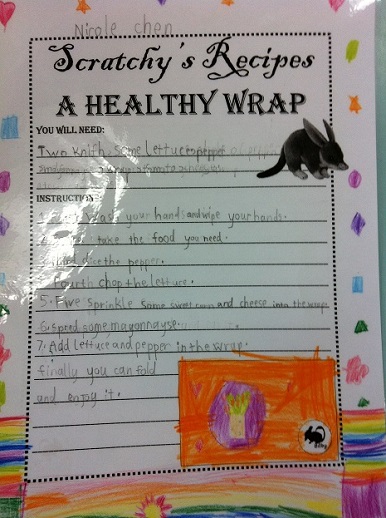 Nicole chen
Scratchy's Recipes
A HEALTHY WRAP
YOU WILL NEED:
Two knifh, some lettuce
INSTRUCTION
wash your hands and wipe your hands.
take the food you need.
dice the pepper.
Fourth chop the lettuce.
5. Five sprinkle some sweet corn and cheese into the wraps
6. spred some mayonnayse.
7. Add lettuce and pepper in the wrap.
finally you can fold
and enjoy it.